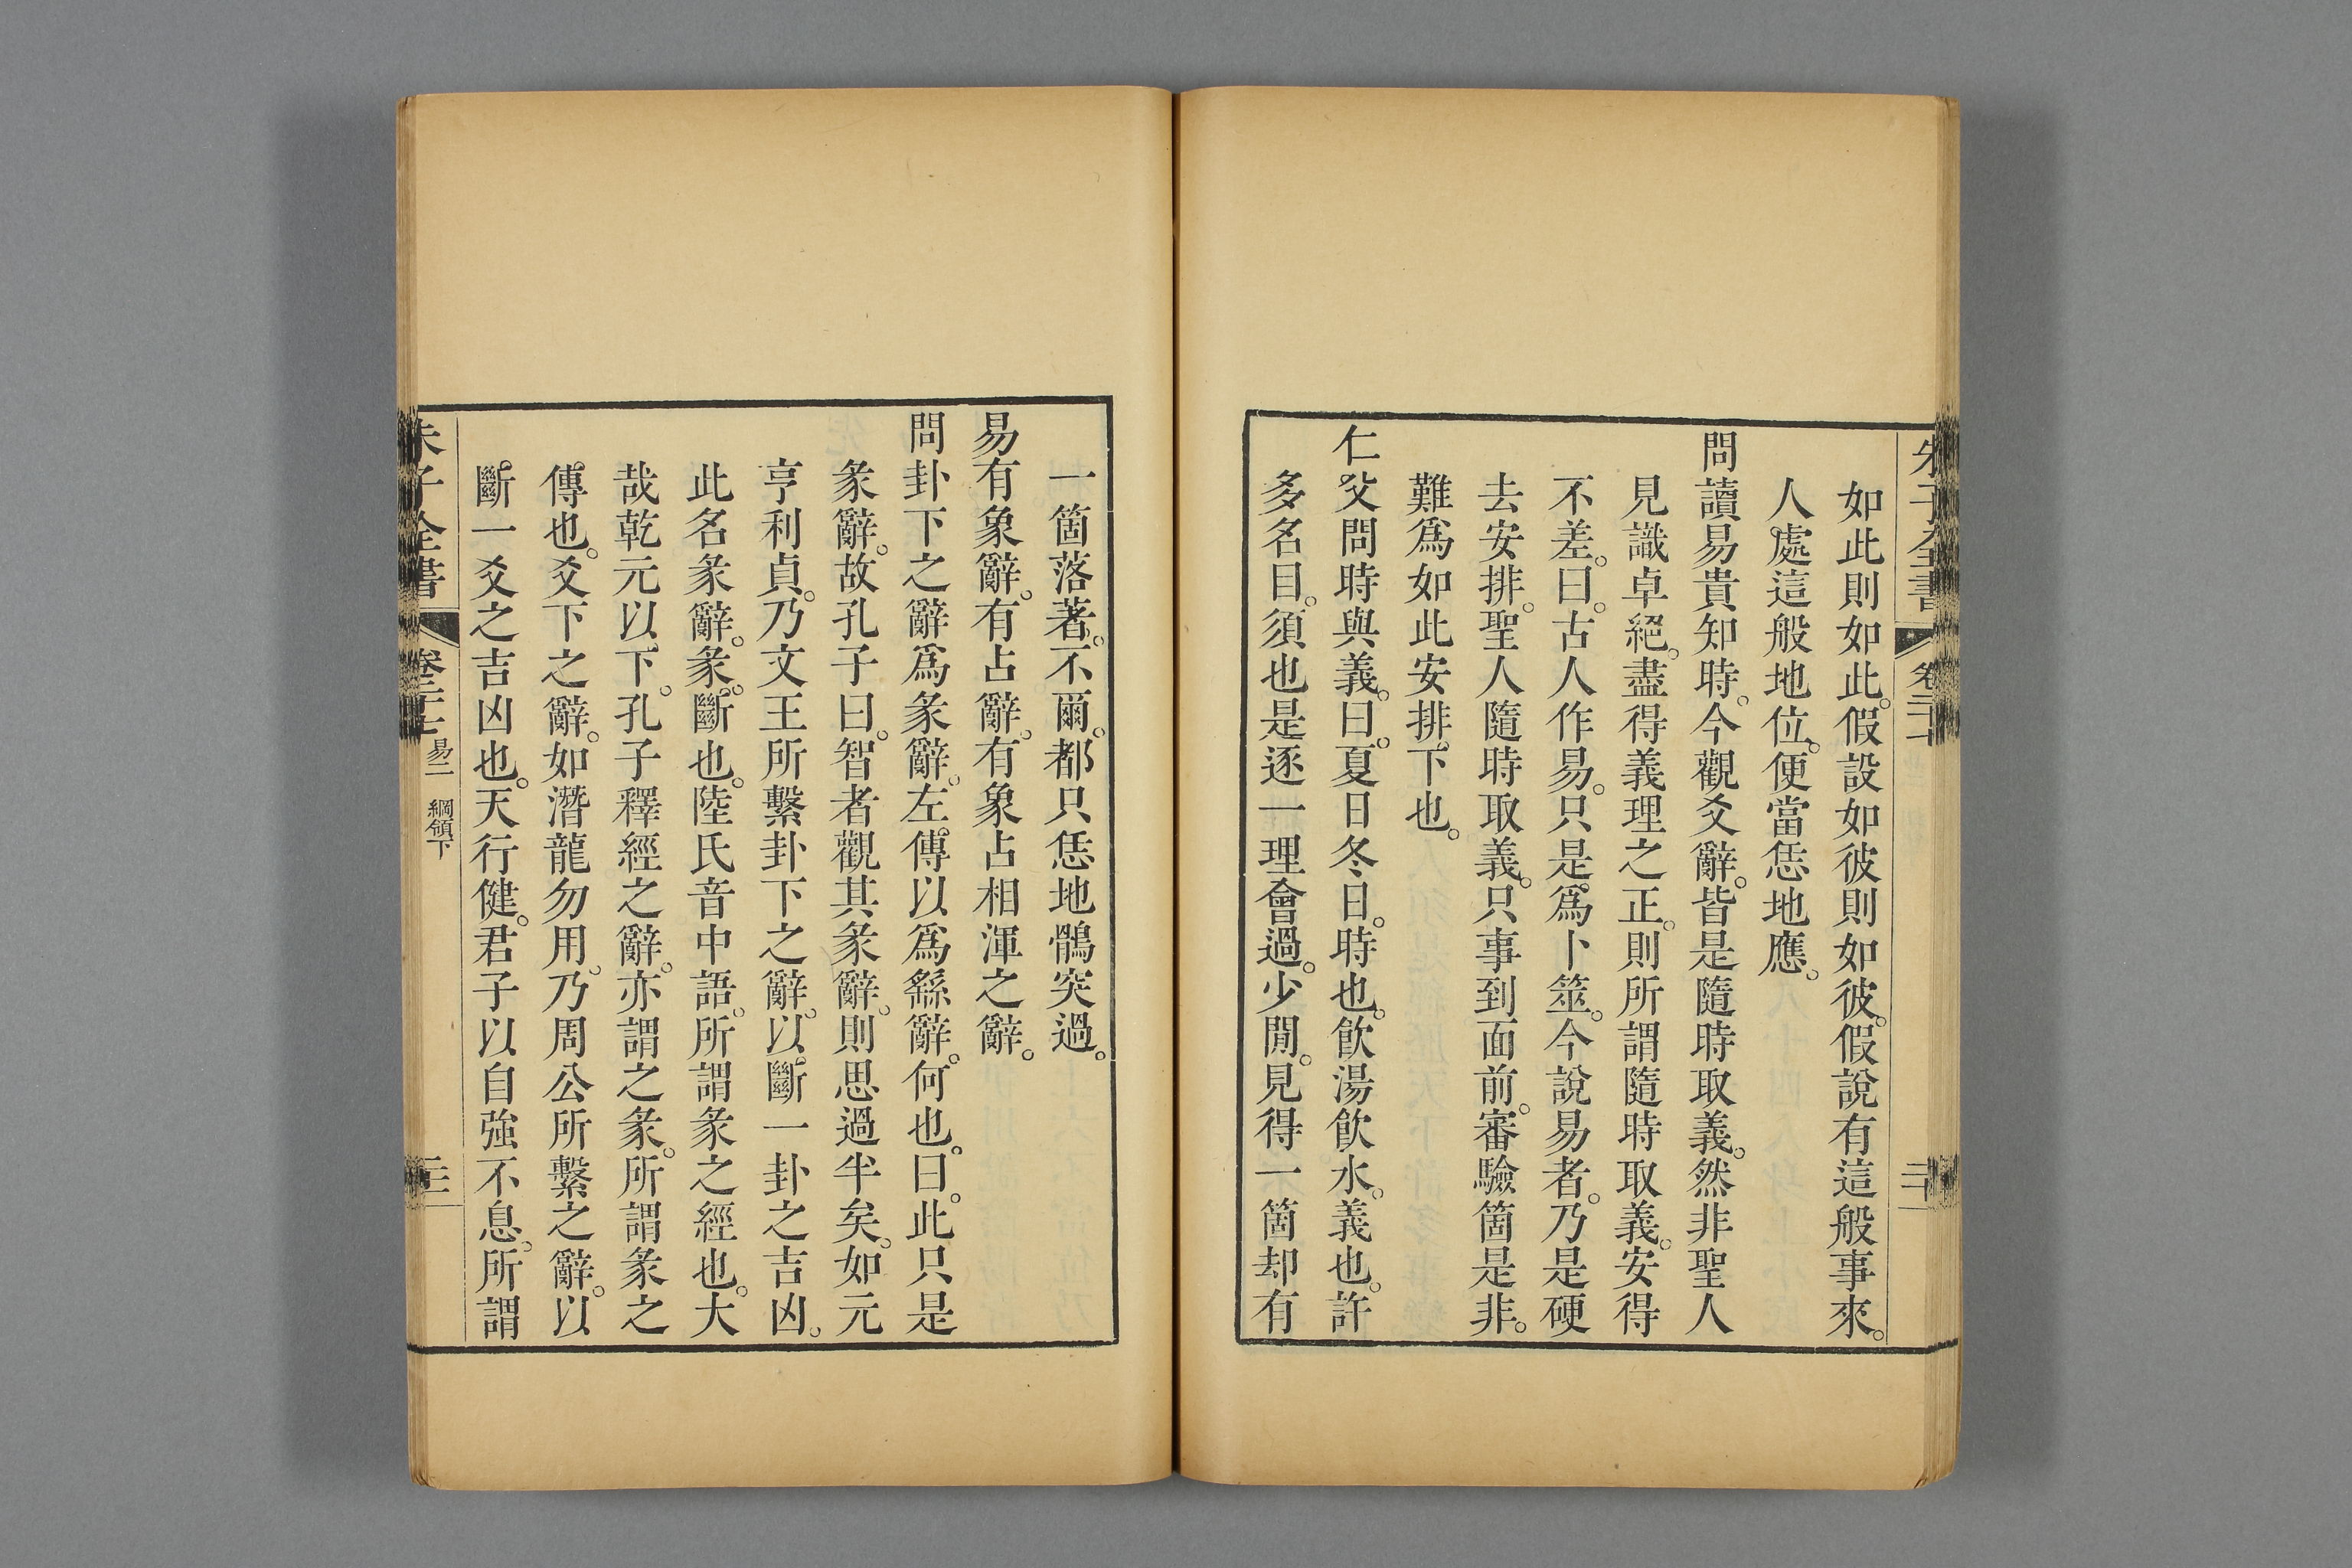 朱子全書 卷二十七
如此則如此。假設如彼則如彼。假說有這般事來。
人處這般地位。便當恁地應。
問讀易貴知時。今觀爻辭。皆是隨時取義。然非聖人
見識卓絕。盡得義理之正。則所謂隨時取義。安得
不差。曰。古人作易。只是爲卜筮。今說易者。乃是硬
去安排。聖人隨時取義。只事到面前。審驗箇是非。
難爲如此安排下也。
仁父問時與義。曰。夏日冬日。時也。飲湯飲水。義也。許
多名目。須也是逐一理會過。少閒。見得一箇却有
一箇落著。不爾。都只恁地鶻突過。
易有象辭。有占辭。有象占相渾之辭。
問卦下之辭爲彖辭。左傳以爲繇辭。何也。曰。此只是
彖辭。故孔子曰。智者觀其彖辭。則思過半矣。如元
亨利貞。乃文王所繫卦下之辭。以斷一卦之吉凶。
此名彖辭。彖。斷也。陸氏音中語。所謂彖之經也。大
哉乾元以下。孔子釋經之辭。亦謂之彖。所謂彖之
傳也。爻下之辭。如潛龍勿用。乃周公所繫之辭。以
斷一爻之吉凶也。天行健。君子以自強不息。所謂
朱子全書 卷二十七 易二 綱領下